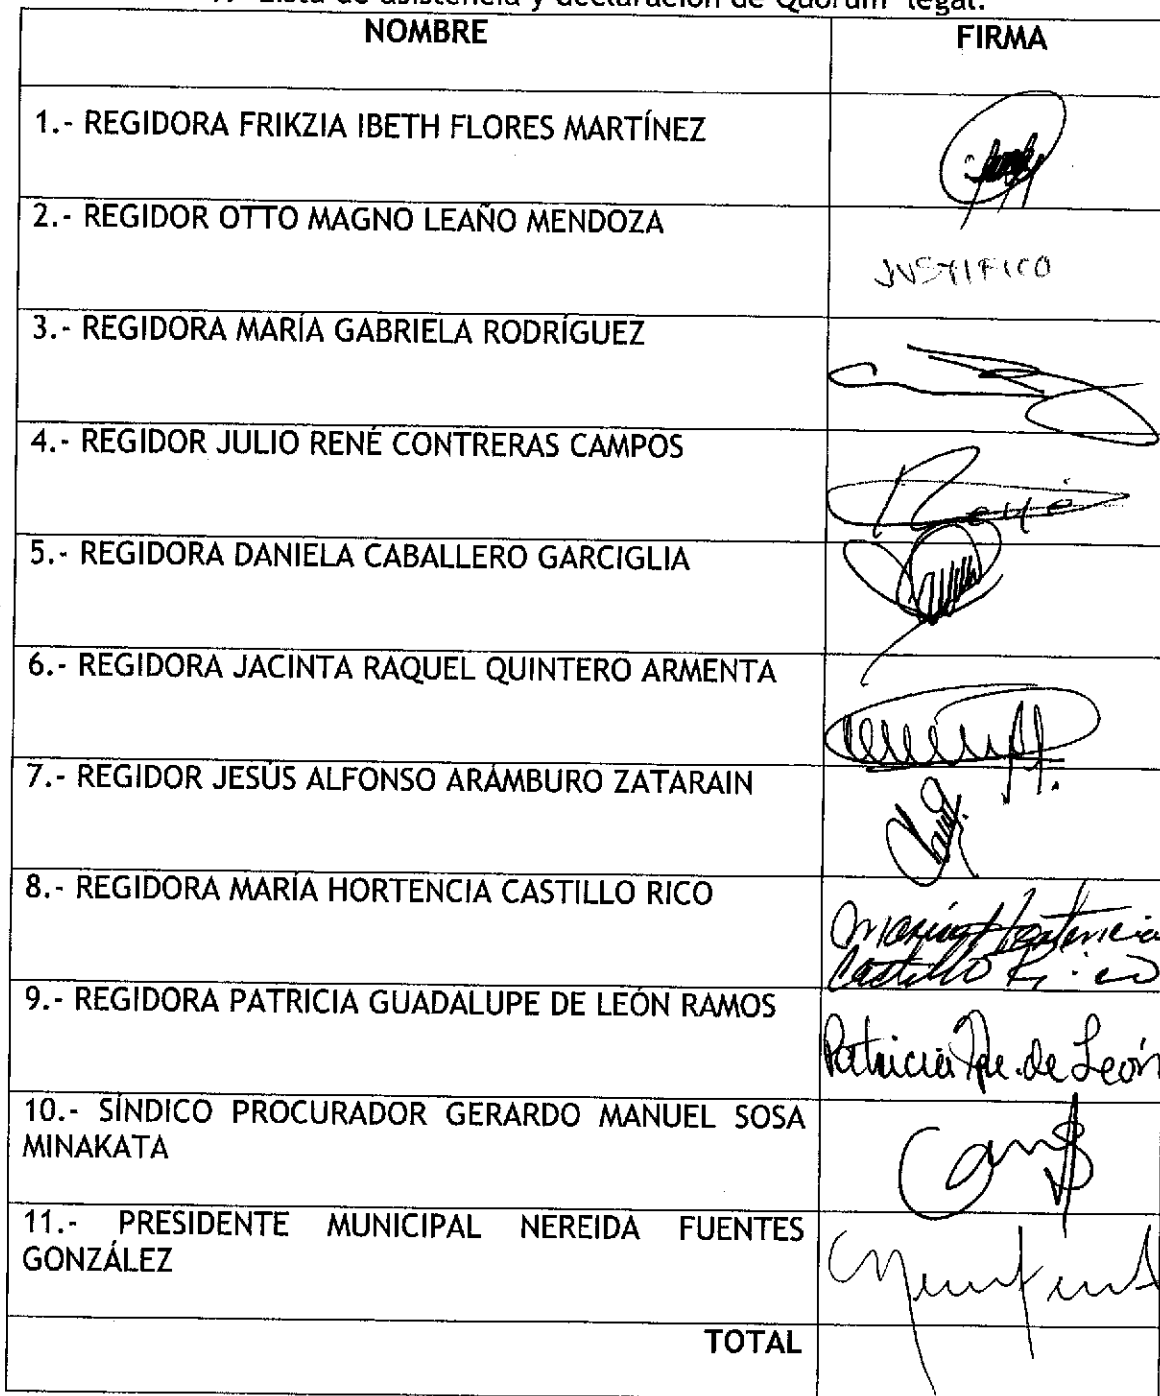 Lista de asistencia y declaración de Quórum legal.
NOMBRE
FIRMA
1.- REGIDORA FRIKZIA IBETH FLORES MARTÍNEZ
2.- REGIDOR OTTO MAGNO LEAÑO MENDOZA
JUSTIFICO
3.- REGIDORA MARÍA GABRIELA RODRÍGUEZ
4.- REGIDOR JULIO RENÉ CONTRERAS CAMPOS
René
5.- REGIDORA DANIELA CABALLERO GARCIGLIA
6.- REGIDORA JACINTA RAQUEL QUINTERO ARMENTA
7.- REGIDOR JESÚS ALFONSO ARÁMBURO ZATARAIN
8.- REGIDORA MARÍA HORTENCIA CASTILLO RICO
María Hortencia
Castillo Rico
9.- REGIDORA PATRICIA GUADALUPE DE LEÓN RAMOS
Patricia Gpe. de León
10.- SÍNDICO PROCURADOR GERARDO MANUEL SOSA
MINAKATA
11.- PRESIDENTE MUNICIPAL NEREIDA FUENTES
GONZÁLEZ
TOTAL